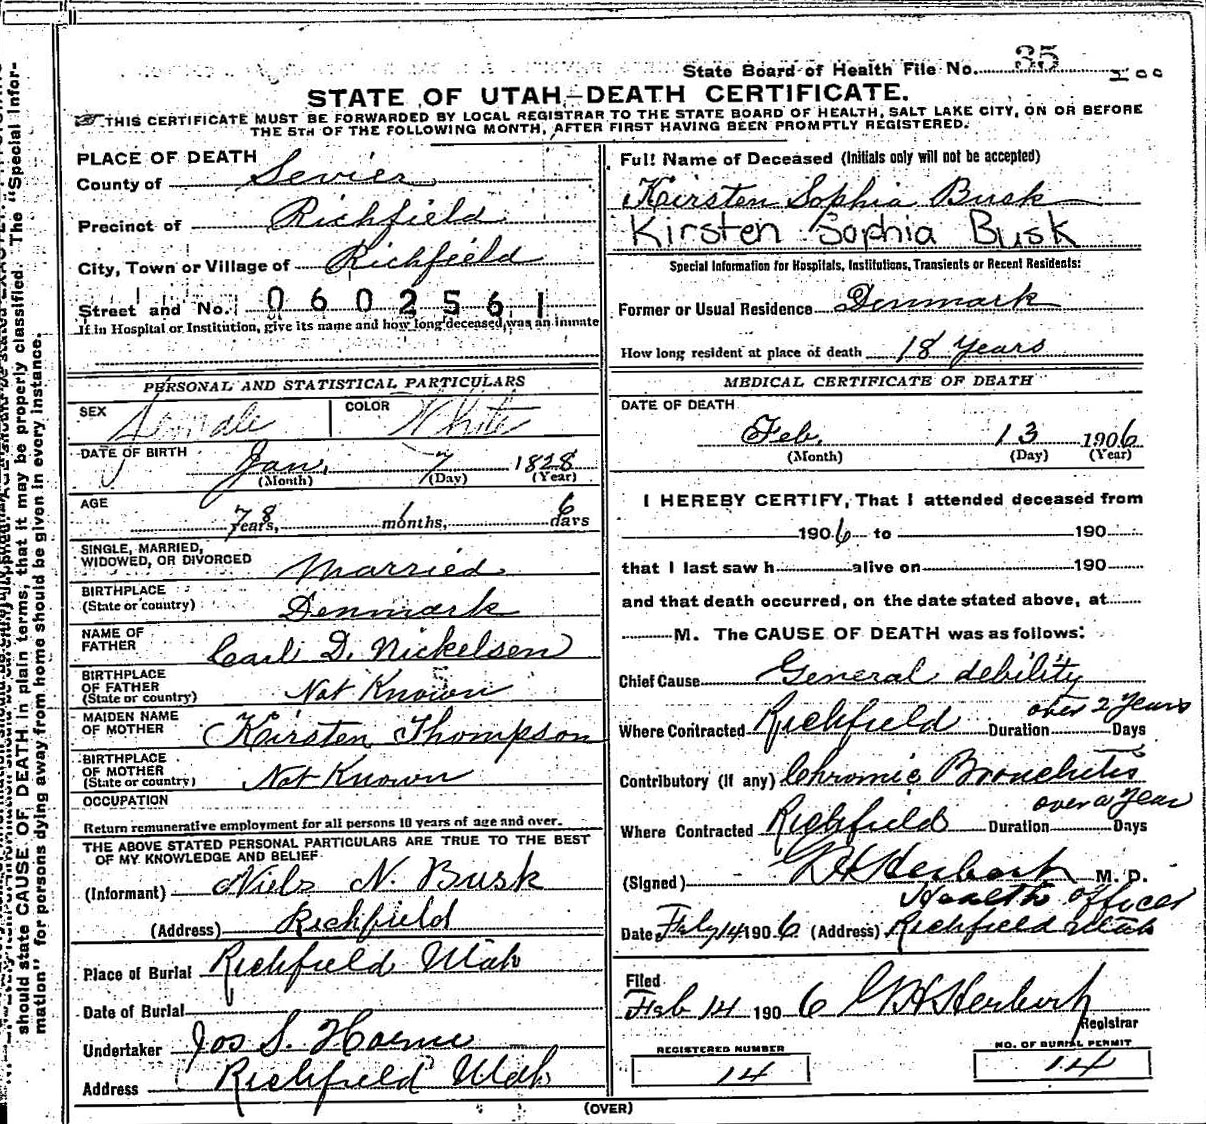 State Board of Health File No. 35
STATE OF UTAH—DEATH CERTIFICATE.
THIS CERTIFICATE MUST BE FORWARDED BY LOCAL REGISTRAR TO THE STATE BOARD OF HEALTH, SALT LAKE CITY, ON OR BEFORE
THE 5TH OF THE FOLLOWING MONTH, AFTER FIRST HAVING BEEN PROMPTLY REGISTERED.
PLACE OF DEATH
County of Sevier
Precinct of Richfield
City, Town or Village of Richfield
Street and No. 0602561
If in Hospital or Institution, give its name and how long deceased was an inmate
PERSONAL AND STATISTICAL PARTICULARS
SEX Female COLOR White
DATE OF BIRTH Jan. 7 1828
(Month) (Day) (Year)
AGE 78 years, 1 months, 6 days
SINGLE, MARRIED,
WIDOWED, OR DIVORCED Married
BIRTHPLACE
(State or country) Denmark
NAME OF
FATHER Carli D. Nickelsen
BIRTHPLACE
OF FATHER
(State or country) Not Known
MAIDEN NAME
OF MOTHER Kirsten Thompson
BIRTHPLACE
OF MOTHER
(State or country) Not Known
OCCUPATION
Return remunerative employment for all persons 10 years of age and over.
THE ABOVE STATED PERSONAL PARTICULARS ARE TRUE TO THE BEST
OF MY KNOWLEDGE AND BELIEF
(Informant) Niels N. Busk
(Address) Richfield
Place of Burial Richfield Utah
Date of Burial
Undertaker Jos S. Horne
Address Richfield Utah
Full Name of Deceased (Initials only will not be accepted)
Keirsten Sophia Busk
Kirsten Sophia Busk
Special Information for Hospitals, Institutions, Transients or Recent Residents:
Former or Usual Residence Denmark
How long resident at place of death 18 Years
MEDICAL CERTIFICATE OF DEATH
DATE OF DEATH
Feb. 13 1906
(Month) (Day) (Year)
I HEREBY CERTIFY, That I attended deceased from
1906 to 190
that I last saw h alive on 190
and that death occurred, on the date stated above, at
M. The CAUSE OF DEATH was as follows:
Chief Cause General debility
Where Contracted Richfield Duration over 2 Years Days
Contributory (If any) Chronic Bronchitis
Where Contracted Richfield Duration over a Year Days
(Signed) M. D.
Health Officer
Date Feb 14 1906 (Address) Richfield Utah
Filed
Feb 14 1906
Registrar
REGISTERED NUMBER
14
NO. OF BURIAL PERMIT
14
(OVER)
should state CAUSE OF DEATH in plain terms, that it may be properly classified. The "Special Infor-
mation" for persons dying away from home should be given in every instance.